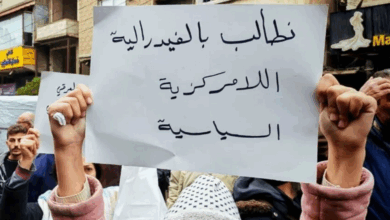 نطالب بالفيدرالية
اللامركزية
السياسية
Ma